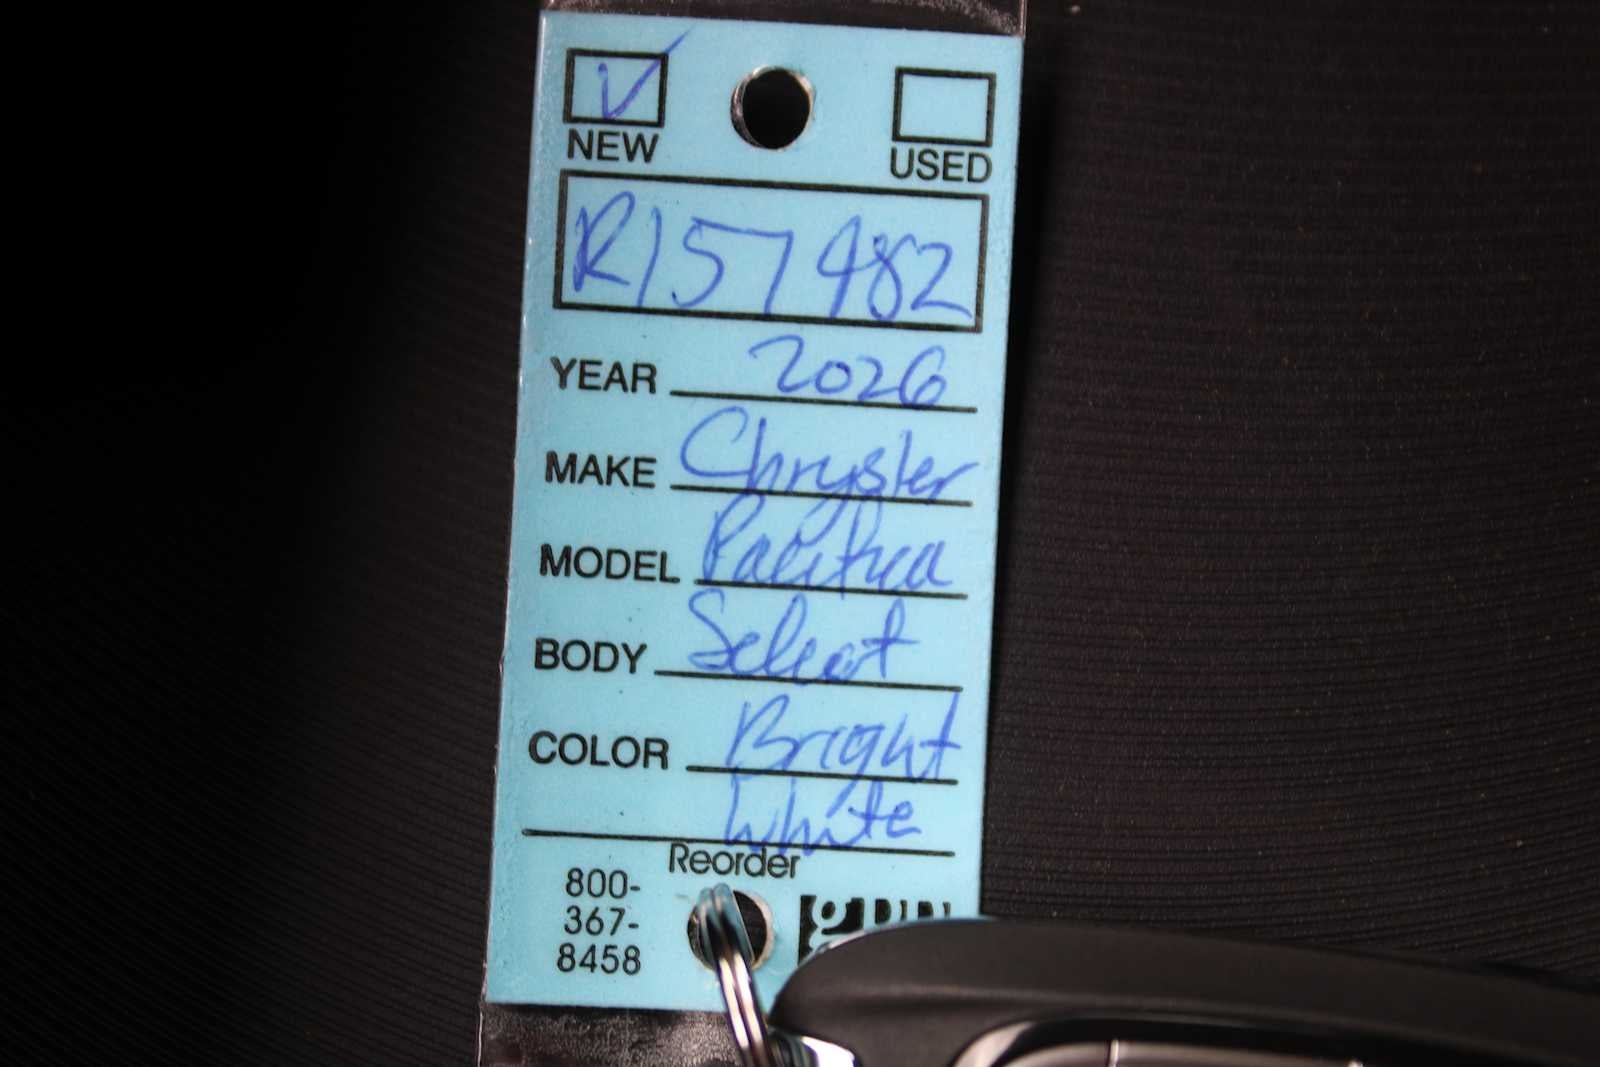 NEW USED
R157482
YEAR 2026
MAKE Chrysler
MODEL Pacifica
BODY Select
COLOR Bright
White
Reorder
800-
367-
8458